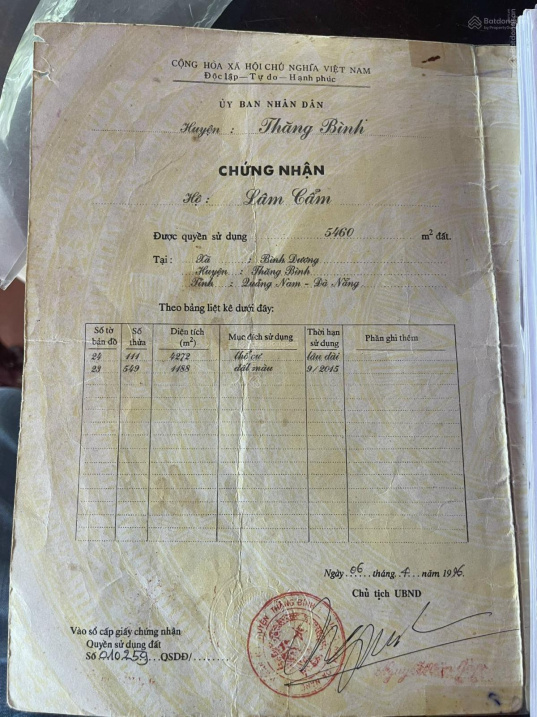 Batdongsan
CỘNG HÒA XÃ HỘI CHỦ NGHĨA VIỆT NAM
Độc lập — Tự do — Hạnh phúc
ỦY BAN NHÂN DÂN
Huyện : Thăng Bình
CHỨNG NHẬN
Hộ : Lâm Cẩm
Được quyền sử dụng 5460 m² đất.
Tại : Xã : Bình Dương
Huyện : Thăng Bình
Tỉnh : Quảng Nam - Đà Nẵng
Theo bảng liệt kê dưới đây:
Số tờ bản đồ Số thửa Diện tích (m²) Mục đích sử dụng Thời hạn sử dụng Phần ghi thêm
24 111 4272 thổ cư lâu dài
23 549 1188 đất màu 9/2015
Ngày 06 tháng 4 năm 1996.
Chủ tịch UBND
Vào sổ cấp giấy chứng nhận
Quyền sử dụng đất
Số 010259 QSDĐ/